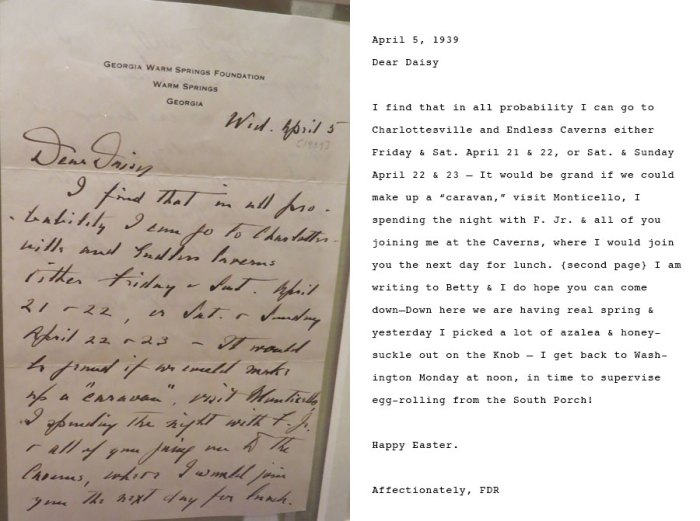 GEORGIA WARM SPRINGS FOUNDATION
WARM SPRINGS
GEORGIA
Wed. April 5
Dear Daisy
I find that in all pro-
bability I can go to Charlottes-
ville and Endless Caverns
either Friday & Sat. April
21 & 22, or Sat. & Sunday
April 22 & 23 — It would
be grand if we could make
up a "caravan", visit Monticello,
I spending the night with F. Jr.
& all of you joing me at the
Caverns, where I would join
you the next day for lunch.
April 5, 1939
Dear Daisy
I find that in all probability I can go to
Charlottesville and Endless Caverns either
Friday & Sat. April 21 & 22, or Sat. & Sunday
April 22 & 23 — It would be grand if we could
make up a “caravan,” visit Monticello, I
spending the night with F. Jr. & all of you
joining me at the Caverns, where I would join
you the next day for lunch. {second page} I am
writing to Betty & I do hope you can come
down—Down here we are having real spring &
yesterday I picked a lot of azalea & honey—
suckle out on the Knob — I get back to Wash—
ington Monday at noon, in time to supervise
egg-rolling from the South Porch!
Happy Easter.
Affectionately, FDR